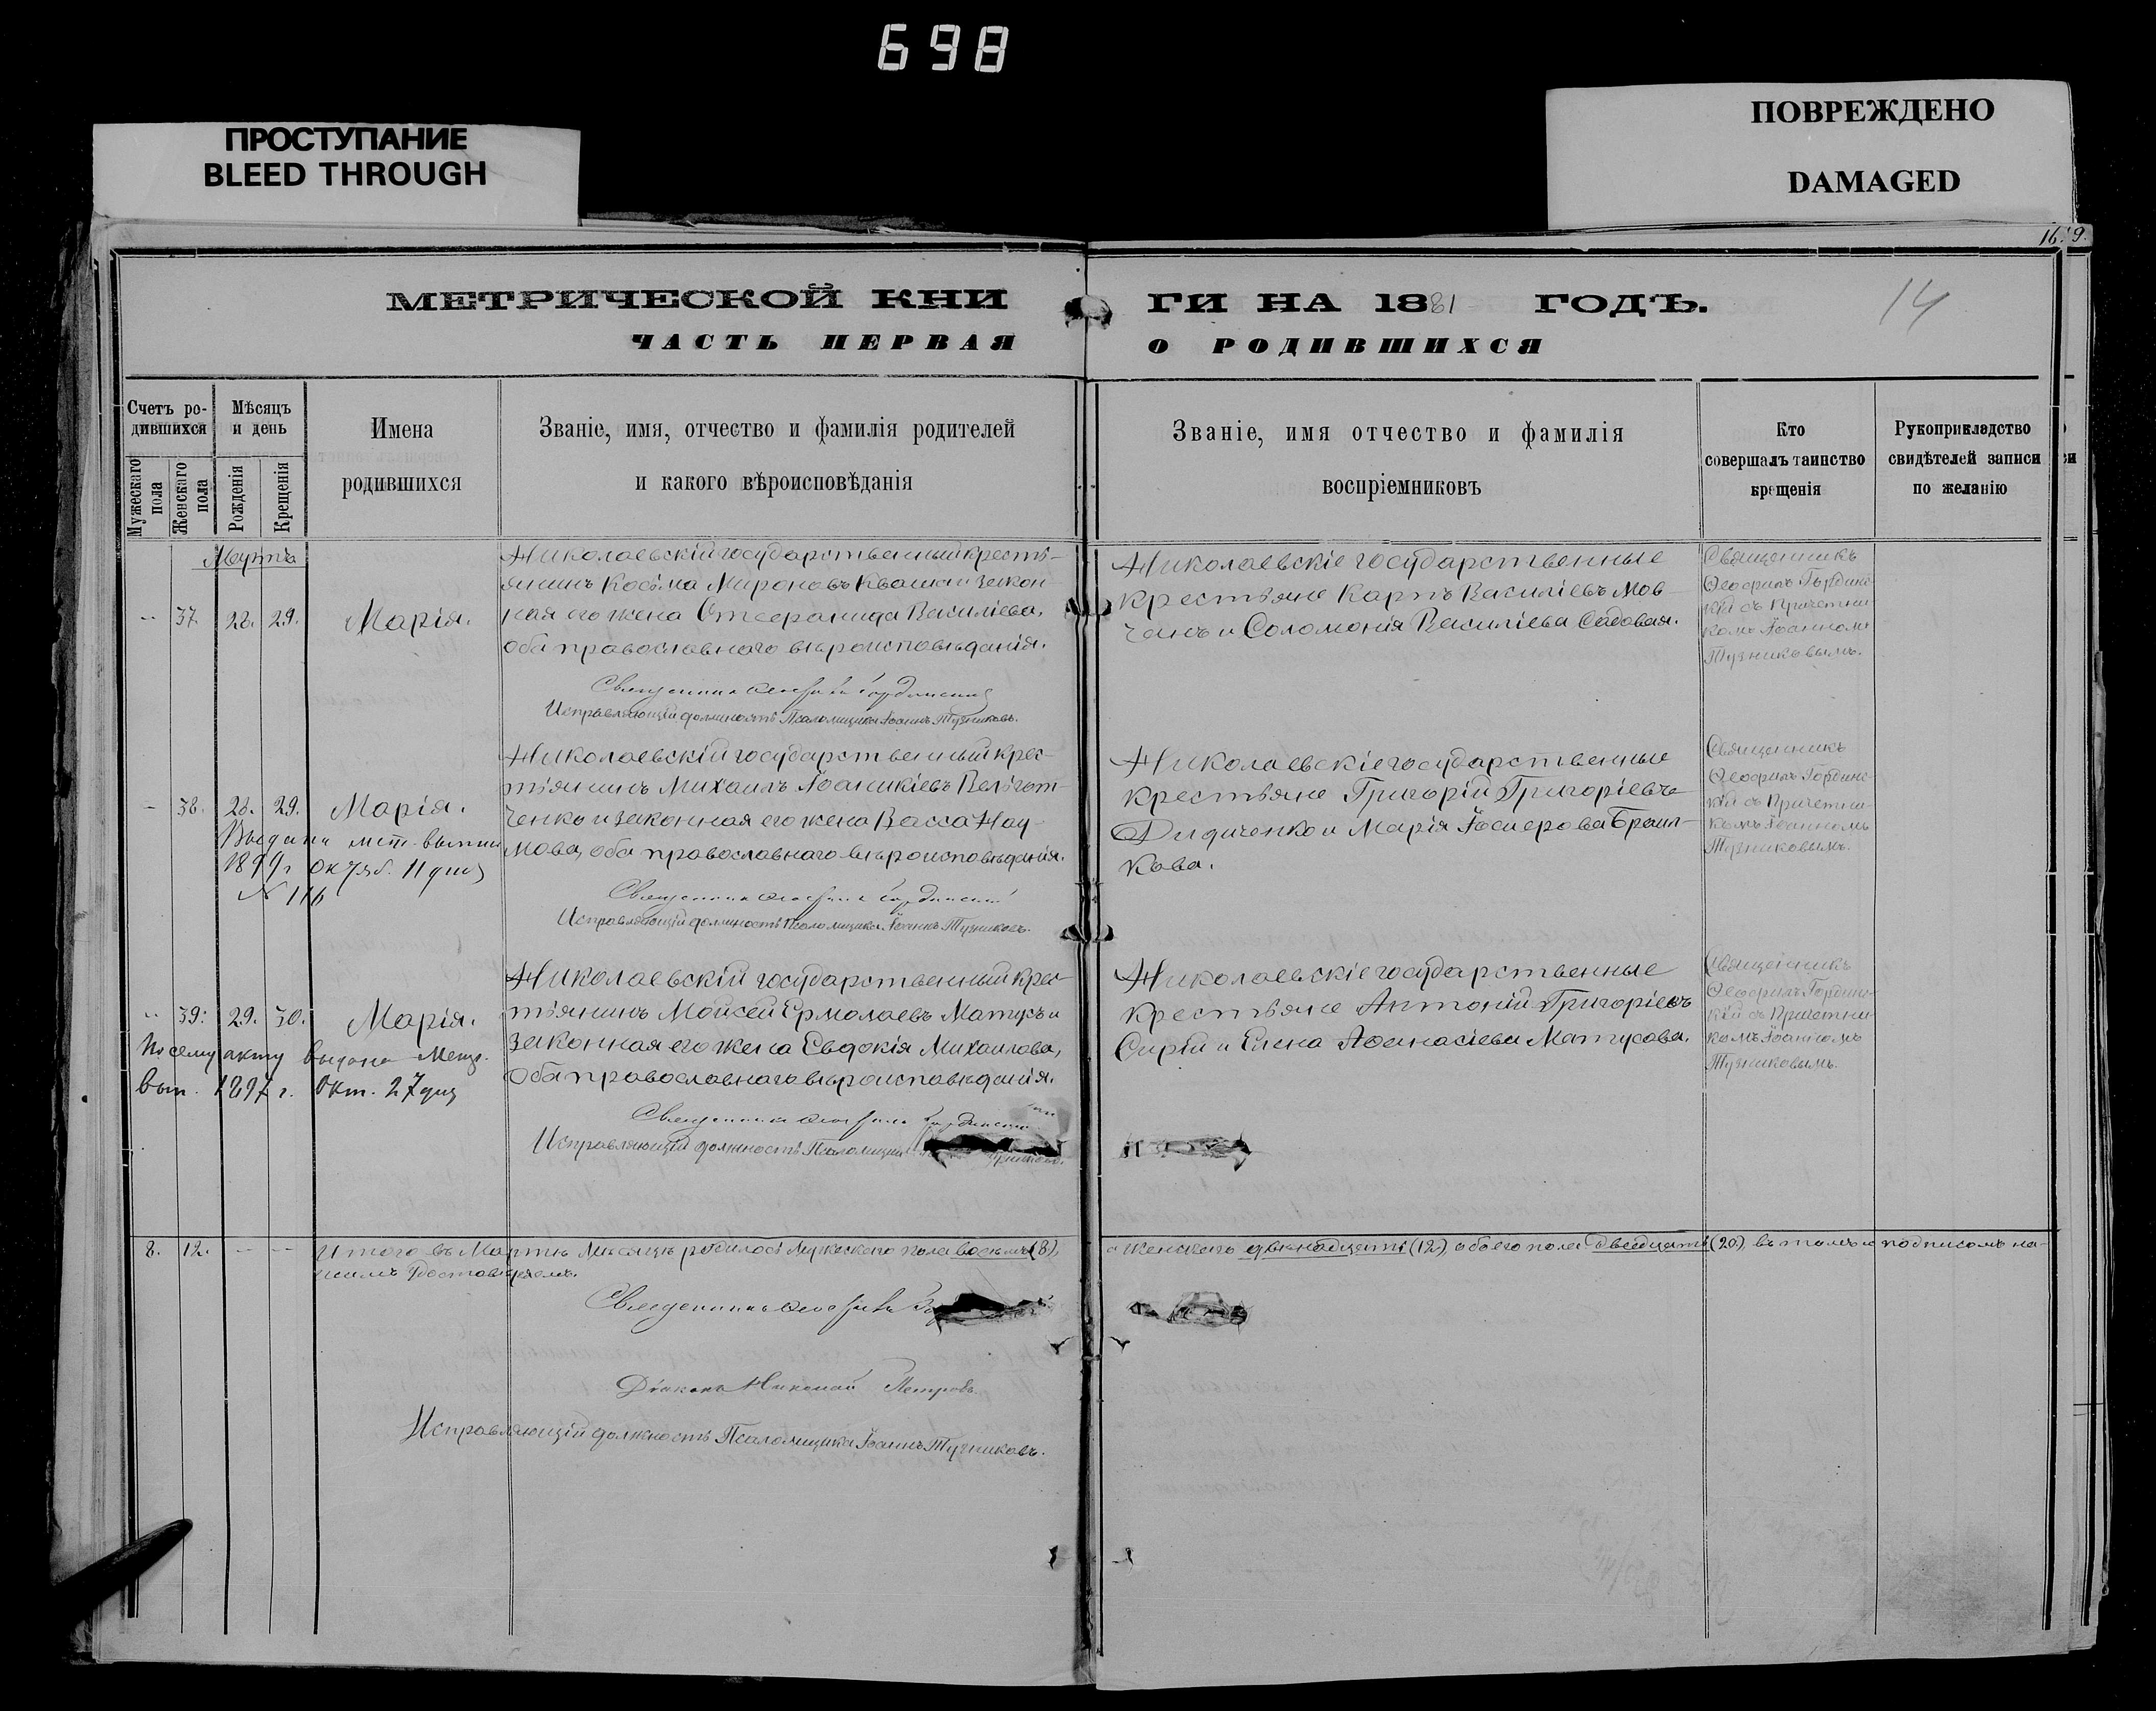 698
ПРОСТУПАНИЕ
BLEED THROUGH
ПОВРЕЖДЕНО
DAMAGED
МЕТРИЧЕСКОЙ КНИ
ГИ НА 1881 ГОДЪ.
14
ЧАСТЬ ПЕРВАЯ
О РОДИВШИХСЯ
Счетъ ро-
дившихся
Мужескаго пола
Женскаго пола
Мѣсяцъ
и день
Рожденія
Крещенія
Имена
родившихся
Званіе, имя, отчество и фамилія родителей
и какого вѣроисповѣданія
Званіе, имя отчество и фамилія
воспріемниковъ
Кто
совершалъ таинство
крещенія
Рукоприкладство
свидѣтелей записи
по желанію
Мартъ
37. 28. 29. Марія.
Николаевскій государственный кресть-
янинъ Косьма Мироновъ Кваша и закон-
ная его жена Василіева,
оба православнаго вѣроисповѣданія.
Священникъ Ѳеофилъ Гординскій
Исправляющій должность Псаломщика Іоаннъ Тузниковъ.
Николаевскіе государственные
крестьяне Карпъ Василіевъ Мов-
чанъ и Соломонія Василіева Садовая.
Священникъ
Ѳеофилъ Гординс-
кій съ Причетни-
комъ Іоанномъ
Тузниковымъ.
38. 28. 29. Марія.
Выдана мет. выпись
1899 г Октяб. 11 дня
N 116
Николаевскій государственный крес-
тьянинъ Михаилъ Іоаникіевъ
ченко и законная его жена Васса Нау-
мова, оба православнаго вѣроисповѣданія.
Священникъ Ѳеофилъ Гординскій
Исправляющій должность Псаломщика Іоаннъ Тузниковъ.
Николаевскіе государственные
крестьяне Григорій Григоріевъ
Дидиченко и Марія Браил-
кова.
Священникъ
Ѳеофилъ Гординс-
кій съ Причетни-
комъ Іоанномъ
Тузниковымъ.
39. 29. 30. Марія.
По сему акту выдана Метр.
вып. 1897 г. Окт. 27 дня
Николаевскій государственный крес-
тьянинъ Мойсей Ермолаевъ Матусъ и
законная его жена Евдокія Михаилова,
оба православнаго вѣроисповѣданія.
Священникъ Ѳеофилъ Гординскій
Исправляющій должность Псаломщика
Николаевскіе государственные
крестьяне Антоній Григоріевъ
Сирій и Елена Аѳанасіева Матусова.
Священникъ
Ѳеофилъ Гординс-
кій съ Причетни-
комъ Іоанномъ
Тузниковымъ.
8. 12. Итого въ Мартѣ Мѣсяцѣ родилось Мужескаго пола восемь (8), а Женскаго двѣнадцать (12) обоего пола двадцать (20) въ томъ и подписомъ на-
шимъ удостовѣряемъ.
Священникъ Ѳеофилъ
Діаконъ Николай Петровъ
Исправляющій должность Псаломщика Іоаннъ Тузниковъ.